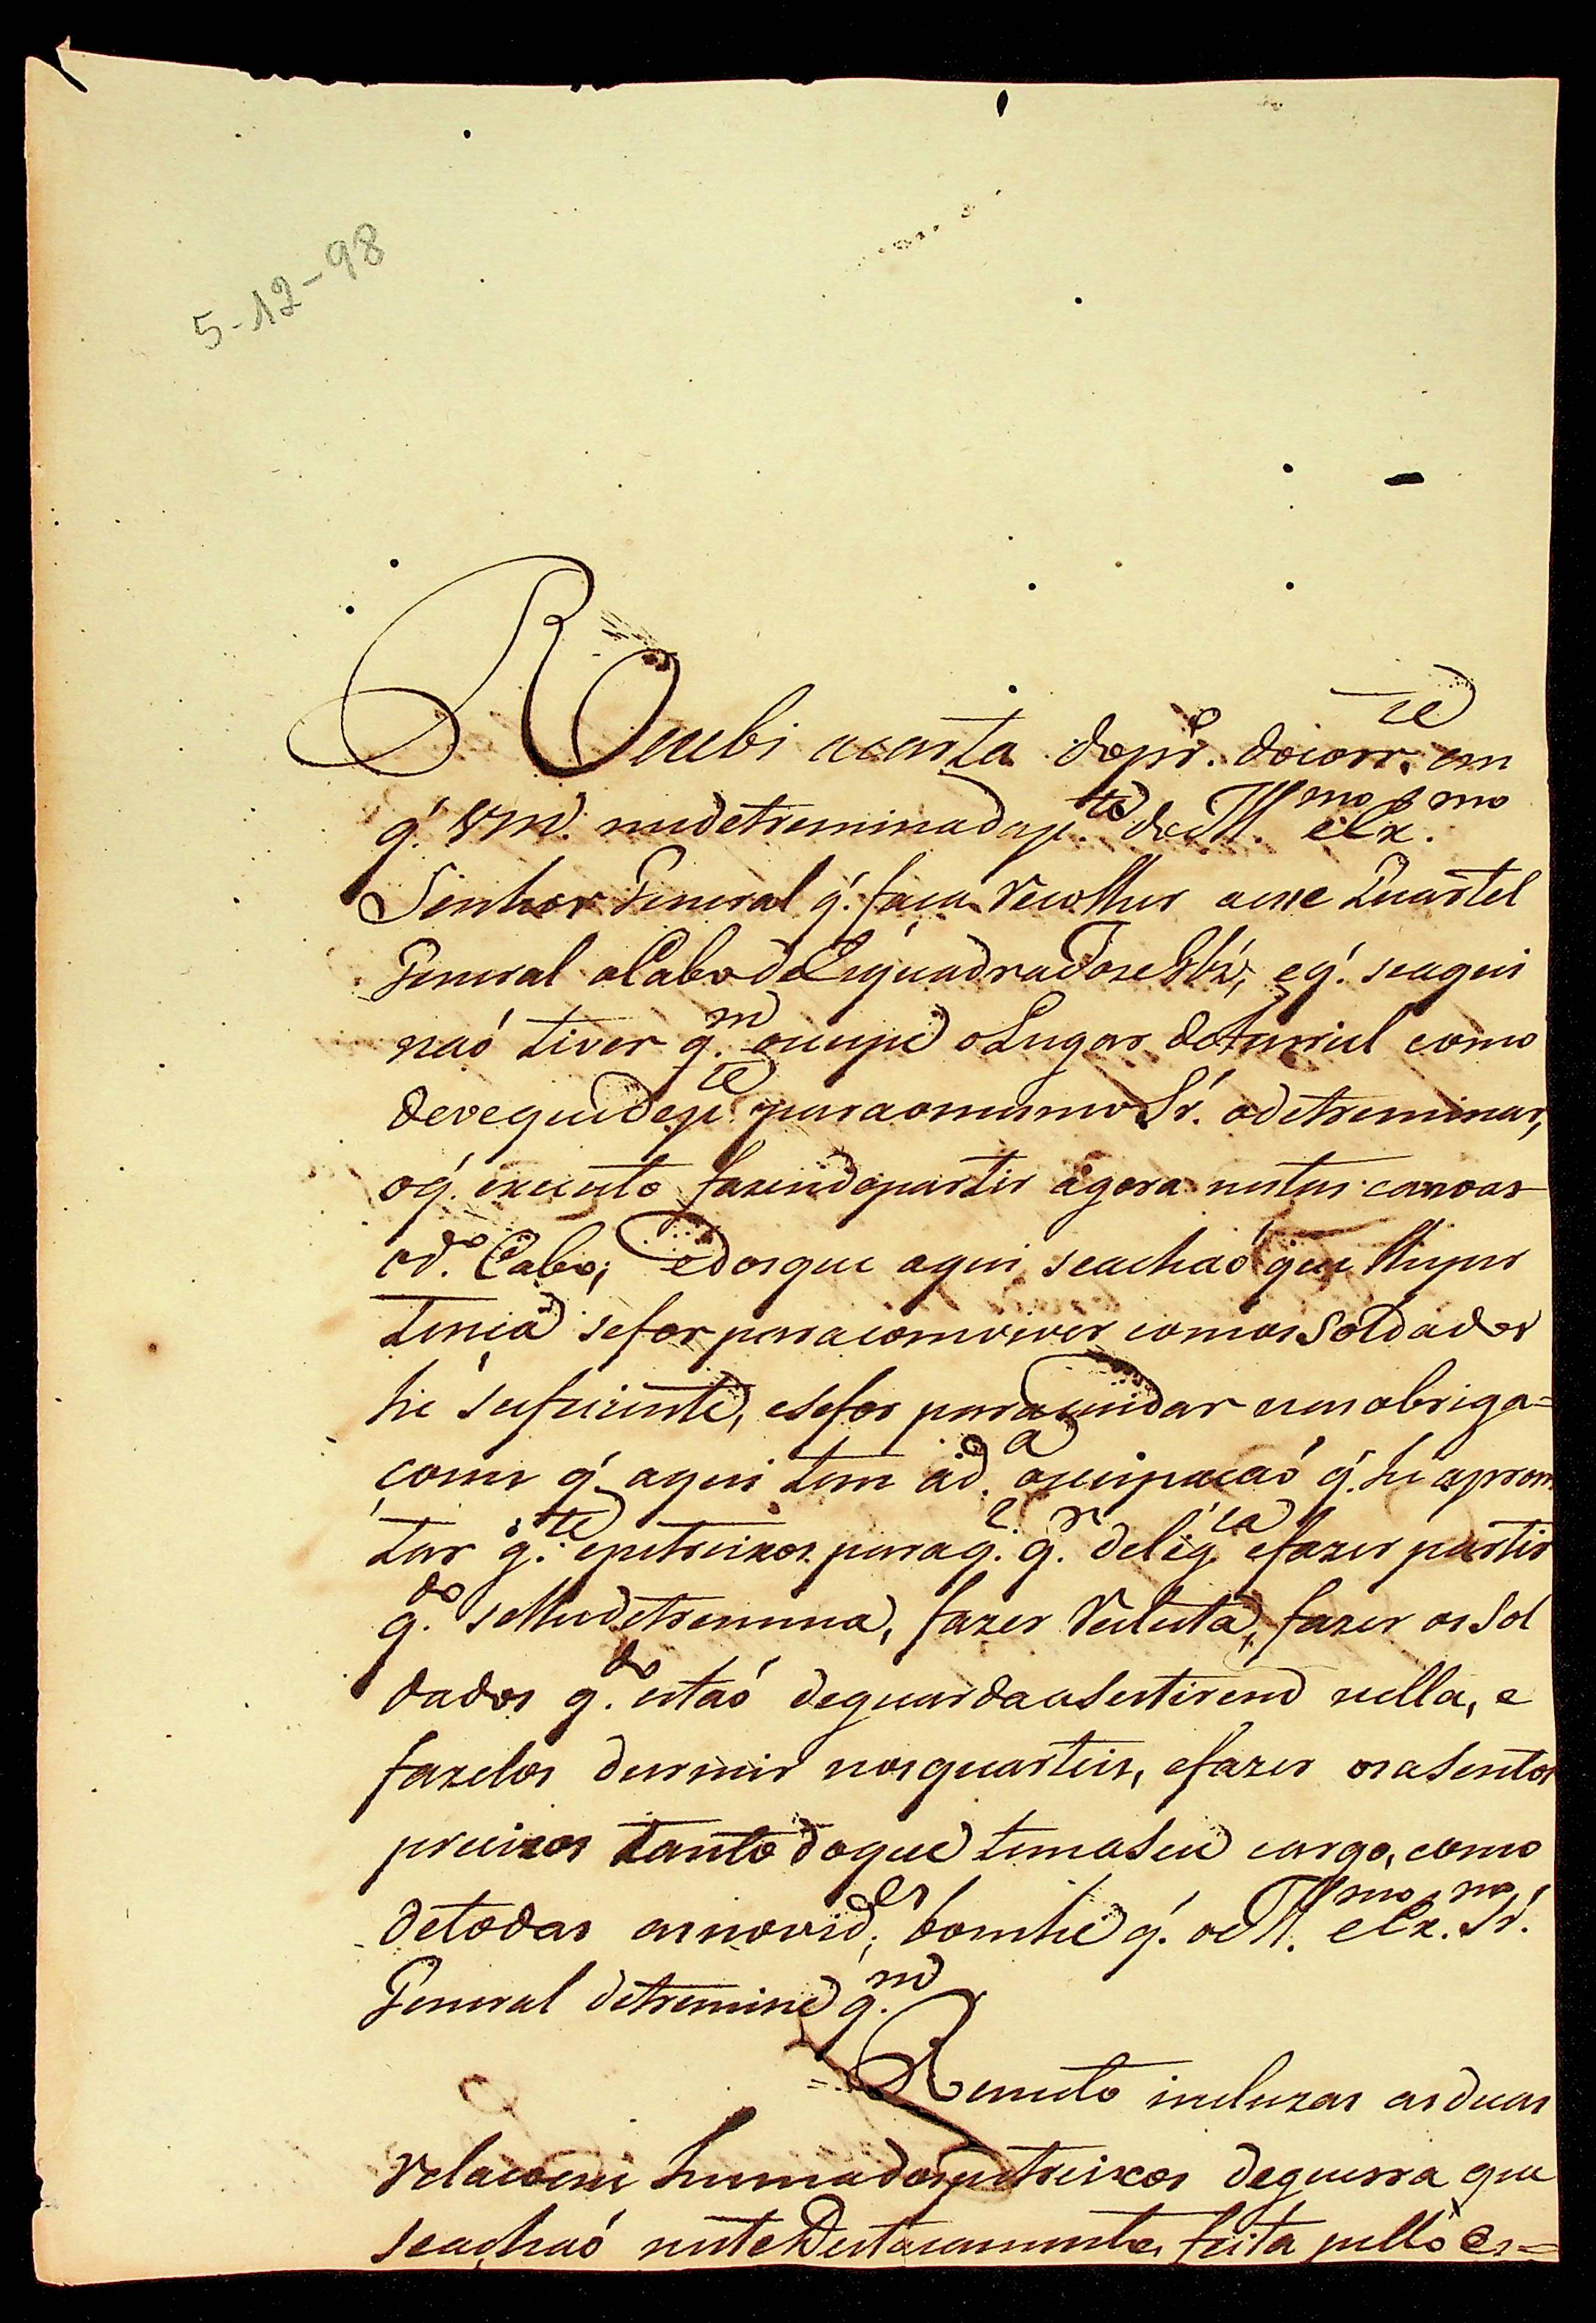 5-12-98
Recebi acarta dopr.º docorr.te em
q̃. VM. medetremina dap.te do Ill.mo e Ex.mo
Senhor General q̃. faça Recolher aesse Quartel
General oCabo deEsquadra Joze e q̃. seaqui
naó tiver q.m ocupe o Lugar defurriel como
deve que depe.te paraomesmo Sr. odetreminar,
oq̃. executo fazendopartir ágora nestas canoas
od.º Cabo; edosque aqui seachaó que lhe per
tençã sefor paracomviver comosSoldados
he suficiente, esefor para cuidar nasobriga=
çoens q̃. aqui tem ad.a ocupacaó q̃. he aprom
tar g.te epetreixos paraq.l q.r delig.ca efazer partir
q.do selhedetremina, fazer Revista, fazer os sol
dados q.do estaó deguardaasestirem nella, e
fazelos durmir nosquarteis, efazer osasentos
precizos tanto doque temaseu cargo, como
detodas asnovid.es bomhe q̃. oIll.mo e Ex.mo Sr.
General detremine q.m
Remeto incluzas asduas
Relacoens humadospetreixos deguerra que
seachaó nesteDestacamento feita pello Es=